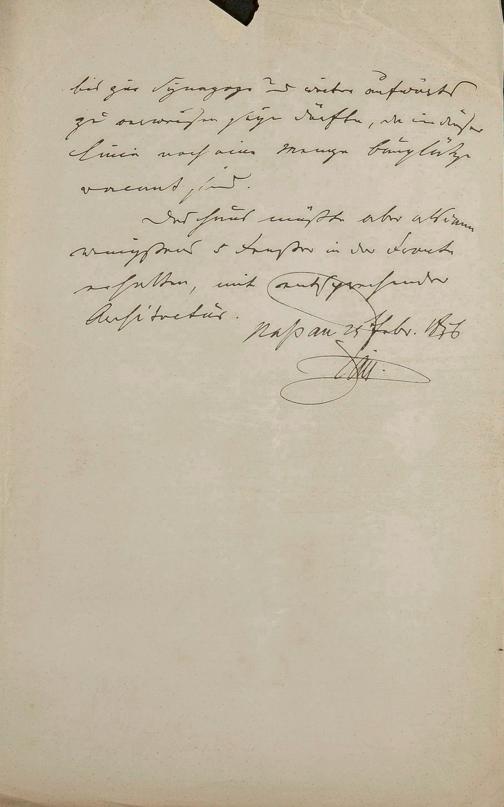 bis zur Synagoge und weiter aufwärts
zu verweisen sein dürfte, da in dieser
Linie noch eine Menge Bauplätze
vacant sind.
Das Haus müßte aber alsdann
wenigstens 5 Fenster in der Fronte
erhalten, mit entsprechender
Architectur.
Naßau 25 Febr. 1876